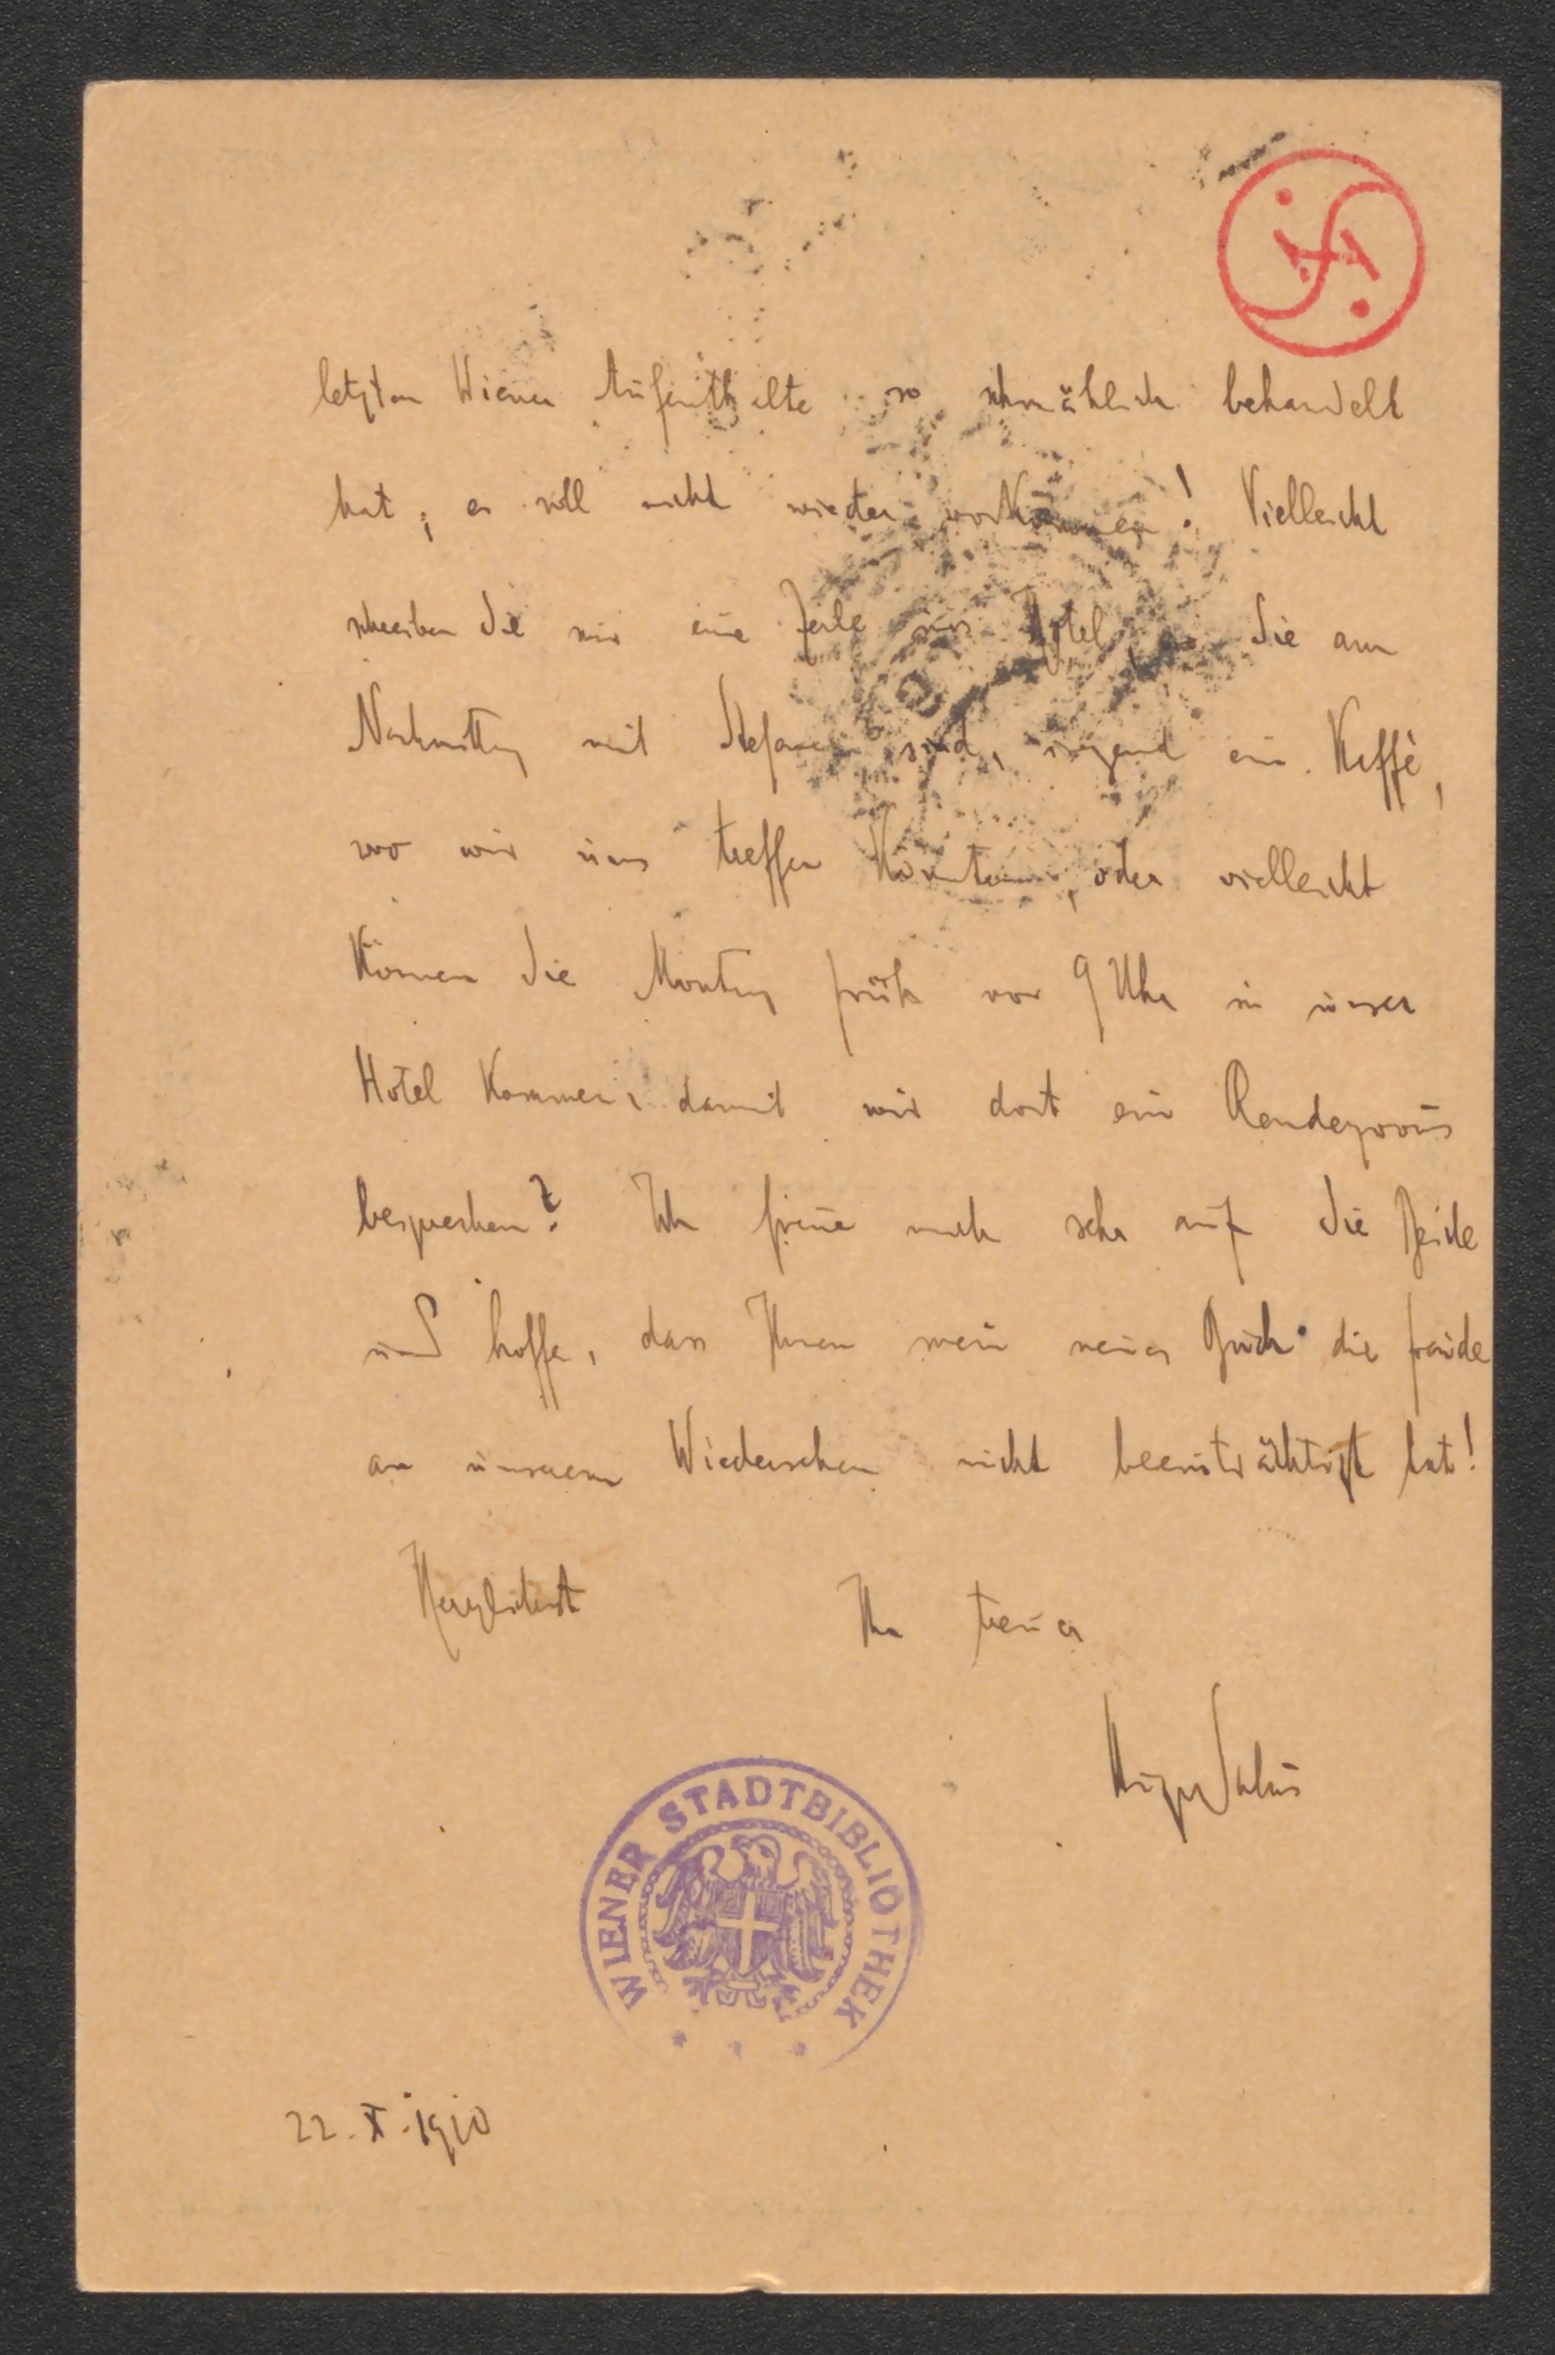 letzten Wiener Aufenthalte so schmählich behandelt
hat; es soll nicht wieder vorkommen! Vielleicht
schreiben Sie mir eine Zeile ins Hotel, wo Sie am
Nachmittag mit Stefan sind, irgend ein Kaffè,
wo wir uns treffen könnten, oder vielleicht
können Sie Montag früh vor 9 Uhr in unser
Hotel kommen, damit wir dort ein Rendezvous
besprechen? Ich freue mich sehr auf Sie Beide
und hoffe, dass Ihnen mein neues Buch die Freude
an unserem Wiedersehen nicht beeinträchtigt hat!
Herzlichst Ihr treuer
Hugo Salus
WIENER STADTBIBLIOTHEK
22. X. 1910